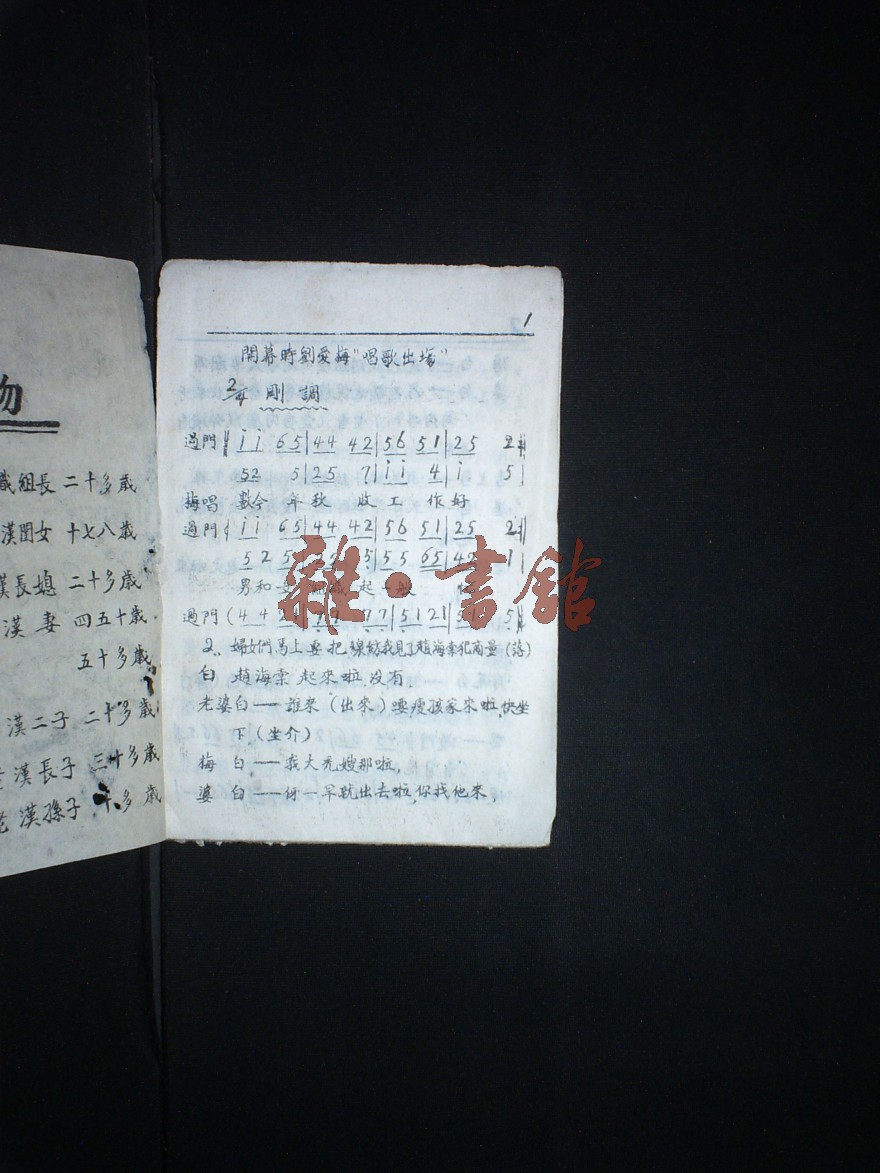 物
織組長 二十多歲
漢閨女 十七八歲
漢長媳 二十多歲
漢 妻 四五十歲
五十多歲
漢二子 二十多歲
漢長子 三十多歲
老漢孫子 十多歲
1
開幕時劉愛梅"唱歌出場"
2/4 剛調
過門 ‖ i i 65 | 44 42 | 56 51 | 25 2 ‖
52 5 | 25 7 | i i 4 | i 5 |
梅唱 數今年秋收工作好
過門 ( i i 65 | 44 42 | 56 51 | 25 2 ‖
5 2 5 5 | 5 5 65 | 42 1 |
男和女 起一般
過門 ( 4 4 7 7 | 5 1 21 | 5 ‖
2、婦女們馬上要把線紡我見了趙海棠把商量(落)
白 趙海棠起來啦没有.
老婆白——誰來(出來)嘎瘦孩家來啦,快坐
下.(坐介)
梅 白——我大禿嫂那啦,
婆 白——伢一早就出去啦,你找他來,
雜·書館